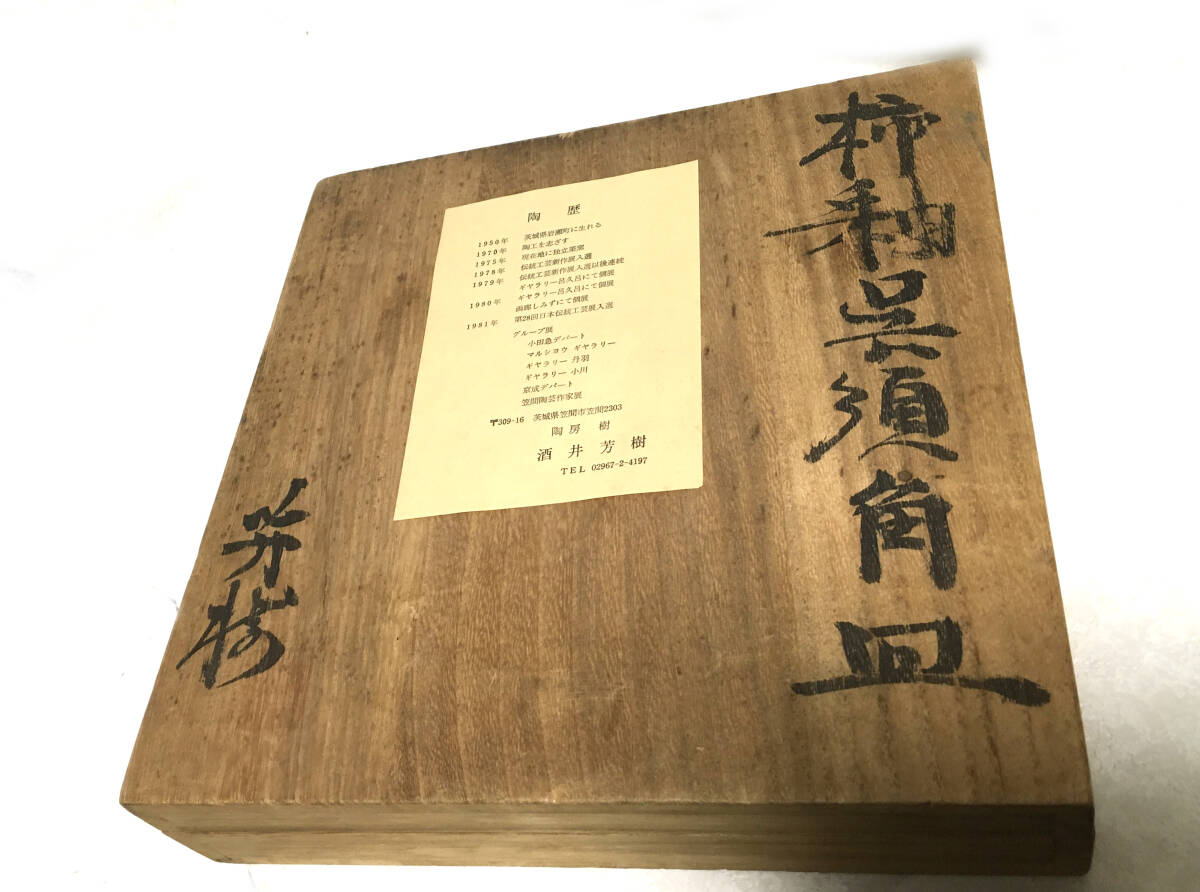 柿釉呉須角皿
陶歴
1950年 茨城県岩瀬町に生れる
1970年 陶工を志ざす
1975年 現在地に独立築窯
1978年 伝統工芸新作展入選
1979年 伝統工芸新作展入選以後連続
ギャラリー呂久呂にて個展
1980年 ギャラリー呂久呂にて個展
画廊しみずにて個展
1981年 第28回日本伝統工芸展入選
グループ展
小田急デパート
マルショウ ギャラリー
ギャラリー 丹羽
ギャラリー 小川
京成デパート
笠間陶芸作家展
〒309-16 茨城県笠間市笠間2303
陶房 樹
酒井芳樹
TEL 02967-2-4197
芳樹